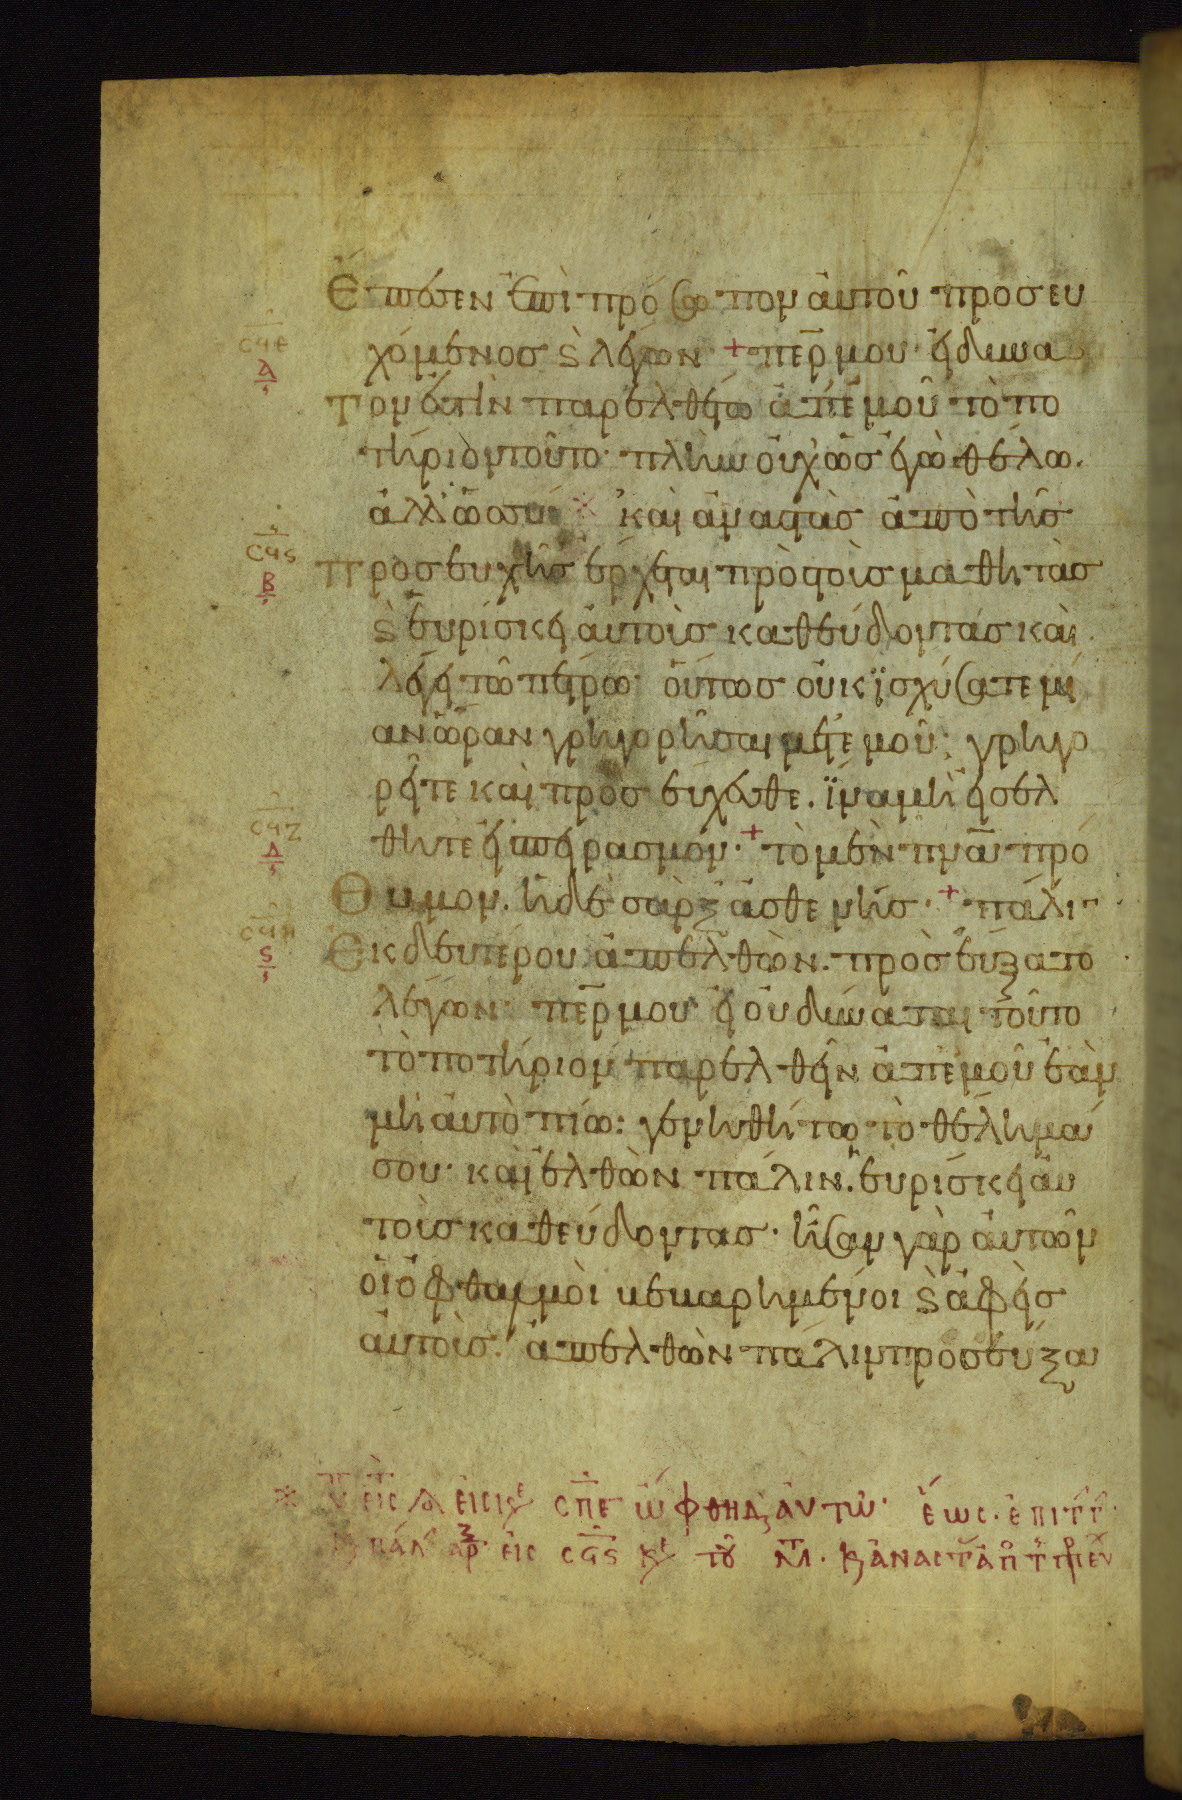 ἔπεσεν ἐπὶ πρόσωπον αὐτοῦ προσευ
χόμενος ϗ λέγων + περ μου· εἰ δυνα
τον ἐστὶν παρελθέτω ἀπ' ἐμοῦ τὸ πο
τήριον τοῦτο· πλὴν οὐχ ὡς ἐγὼ θέλω.
ἀλλ' ὡς σύ ※ καὶ ἀναστὰς ἀπὸ τῆς
προσευχῆς ἔρχεται πρὸς τοὺς μαθητὰς
ϗ εὑρίσκει αὐτοὺς καθεύδοντας καὶ
λέγει τῶ πέτρω· οὕτως οὐκ ἰσχύσατε μί
αν ὥραν γρηγορῆσαι μετ' ἐμοῦ; γρηγο
ρεῖτε καὶ προσεύχεσθε. ἵνα μὴ εἰσέλ
θητε εἰς πειρασμόν· + τὸ μὲν πνα πρό
θυμον. ἡ δὲ σὰρξ ἀσθενής· + πάλιν
ἐκ δευτέρου ἀπελθὼν. προσεύξατο
λέγων περ μου εἰ οὐ δύναται τοῦτο
τὸ ποτήριον παρελθεῖν ἀπ' ἐμοῦ ἐὰν
μὴ αὐτὸ πίω: γενηθήτω τὸ θέλημά
σου· καὶ ἐλθὼν πάλιν. εὑρίσκει αὐ
τοὺς καθεύδοντας· ἦσαν γὰρ αὐτῶν
οἱ ὀφθαλμοὶ βεβαρημένοι ϗ ἀφεὶς
αὐτοὺς. ἀπελθὼν πάλιν προσεύξα
σϥε
Δ
σϥς
Β
σϥζ
Δ
σϥη
ς
※ σπε ὤφθη δὲ αὐτῶ· ἕως· ἐπὶ τ γ
εἰς σϥς τοῦ ϗ ἀναστ ἀπ τ